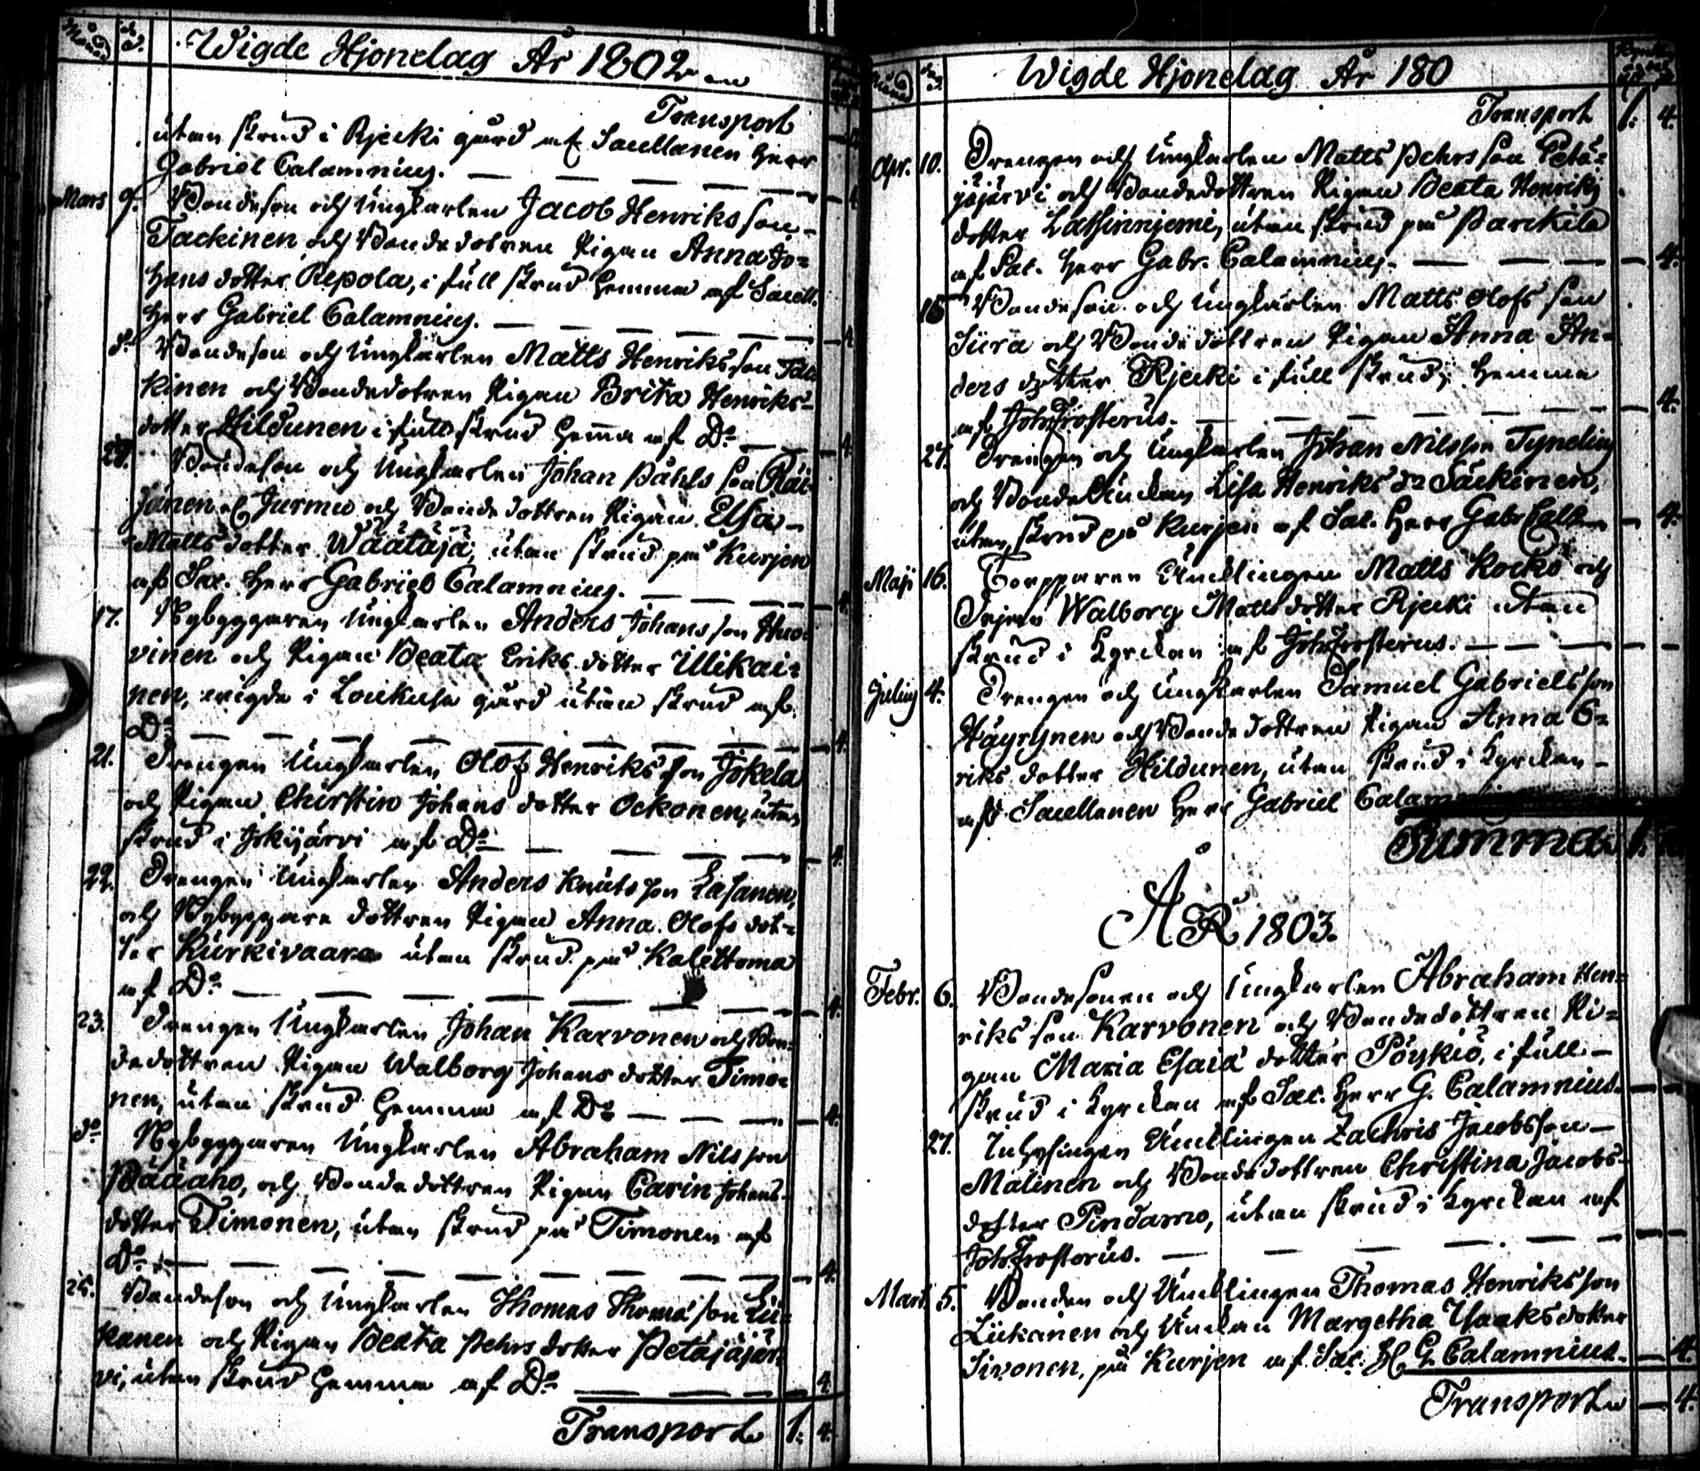 Månad
d.
Wigde Hjonelag År 1802
Transport
utan skrud i Rjecki gård af Sacellanen Herr
Gabriel Calamnius. 4
Mars 7. Bondeson och Ungkarlen Jacob Henriksson
Tackinen och Bondedotren Pigan Anna Jo=
hans dotter Repola, i full skrud hemma af Sacell.
Herr Gabriel Calamnius. 4
Bondeson och Ungkarlen Matts Henriksson Tac
kinen och Bondedotren Pigan Brita Henriks=
dotter Hildunen i full skrud hemma af Do 4
Bondeson och Ungkarlen Johan Påhlsson
Jurmu och Bondedottren Pigan Elsa
Mattsdotter Wäätäjä, utan skrud på Kurjen
af Sac. Herr Gabriel Calamnius. 4
17. Nybyggaren Ungkarlen Anders Johansson Huo=
vinen och Pigan Beata Eriksdotter Illikai=
nen, wigde i Loukusa gård utan skrud af
Do 4
21. Drengen Ungkarlen Olof Henriksson Jokela
och Pigan Chirstin Johansdotter Ockonen, utan
skrud i Jokijärvi af Do 4
22. Drengen Ungkarlen Anders Knutsson Lasanen,
och Nybyggare dottren Pigan Anna Olofs dot=
ter Kurkivaara utan skrud på Kalettoma
af Do 4
23. Drengen Ungkarlen Johan Karvonen och Bon=
dedottren Pigan Walborg Johansdotter Timo=
nen, utan skrud hemma af Do 4
Do Nybyggaren Ungkarlen Abraham Nilsson
Pääaho, och Bondedottren Pigan Carin Johans=
dotter Timonen, utan skrud på Timonen af
Do 4
25. Bondeson och Ungkarlen Thomas Thomasson Lii=
kanen och Pigan Beata Pehrsdotter Petäjäjär
vi, utan skrud hemma af Do 4
Transport 1. 4.
Wigde Hjonelag År 180
Transport 1. 4.
Apr. 10. Drengen och Ungkarlen Matts Pehrsson Petä=
jäjärvi och Bondedottren Pigan Beata Henriks
dotter Lathinniemi, utan skrud på Parckila
af Sac. Herr Gabr. Calamnius. 4.
15 Bondeson och Ungkarlen Matts Olofsson
Siira och Bondedottren Pigan Anna An=
ders dotter Rjecki i full skrud hemma
af Joh Frosterus. 4.
27. Drengen och Ungkarlen Johan Nilsson Tynelius
och Bonde Änckan Lisa Henriks dr Säckinen,
utan skrud på Kurjen af Sac. Herr Gabr Calam 4.
Maji 16. Torpparen Ämklingen Matts Kocko och
Pigan Walborg Mattsdotter Rjecki utan
skrud i Kyrckan af Joh Frosterus.
Julius 4. Drengen och Ungkarlen Samuel Gabrielsson
Häyrynen och Bondedottren Pigan Anna E=
riks dotter Hildunen, utan skrud i Kyrckan
af Sacellanen Herr Gabriel Calam
Summa 1.
ÅR 1803.
Febr. 6. Bondesonen och Ungkarlen Abraham Hen=
riksson Karvonen och Bondedottren Pi=
gan Maria Esaia dotter Pöyskiö, i full
skrud i Kyrckan af Sac. Herr G. Calamnius
27. Inhysingen Ämklingen Zachris Jacobsson
Malinen och Bondedottren Christina Jacobs=
dotter Pindamo, utan skrud i Kyrckan af
Joh Frosterus.
Mart. 5. Bonden och Ämklingen Thomas Henriksson
Liikanen och Änckan Margetha Isaaksdotter
Sivonen, på Kurjen af Sac. H G. Calamnius. 4.
Transport 4.